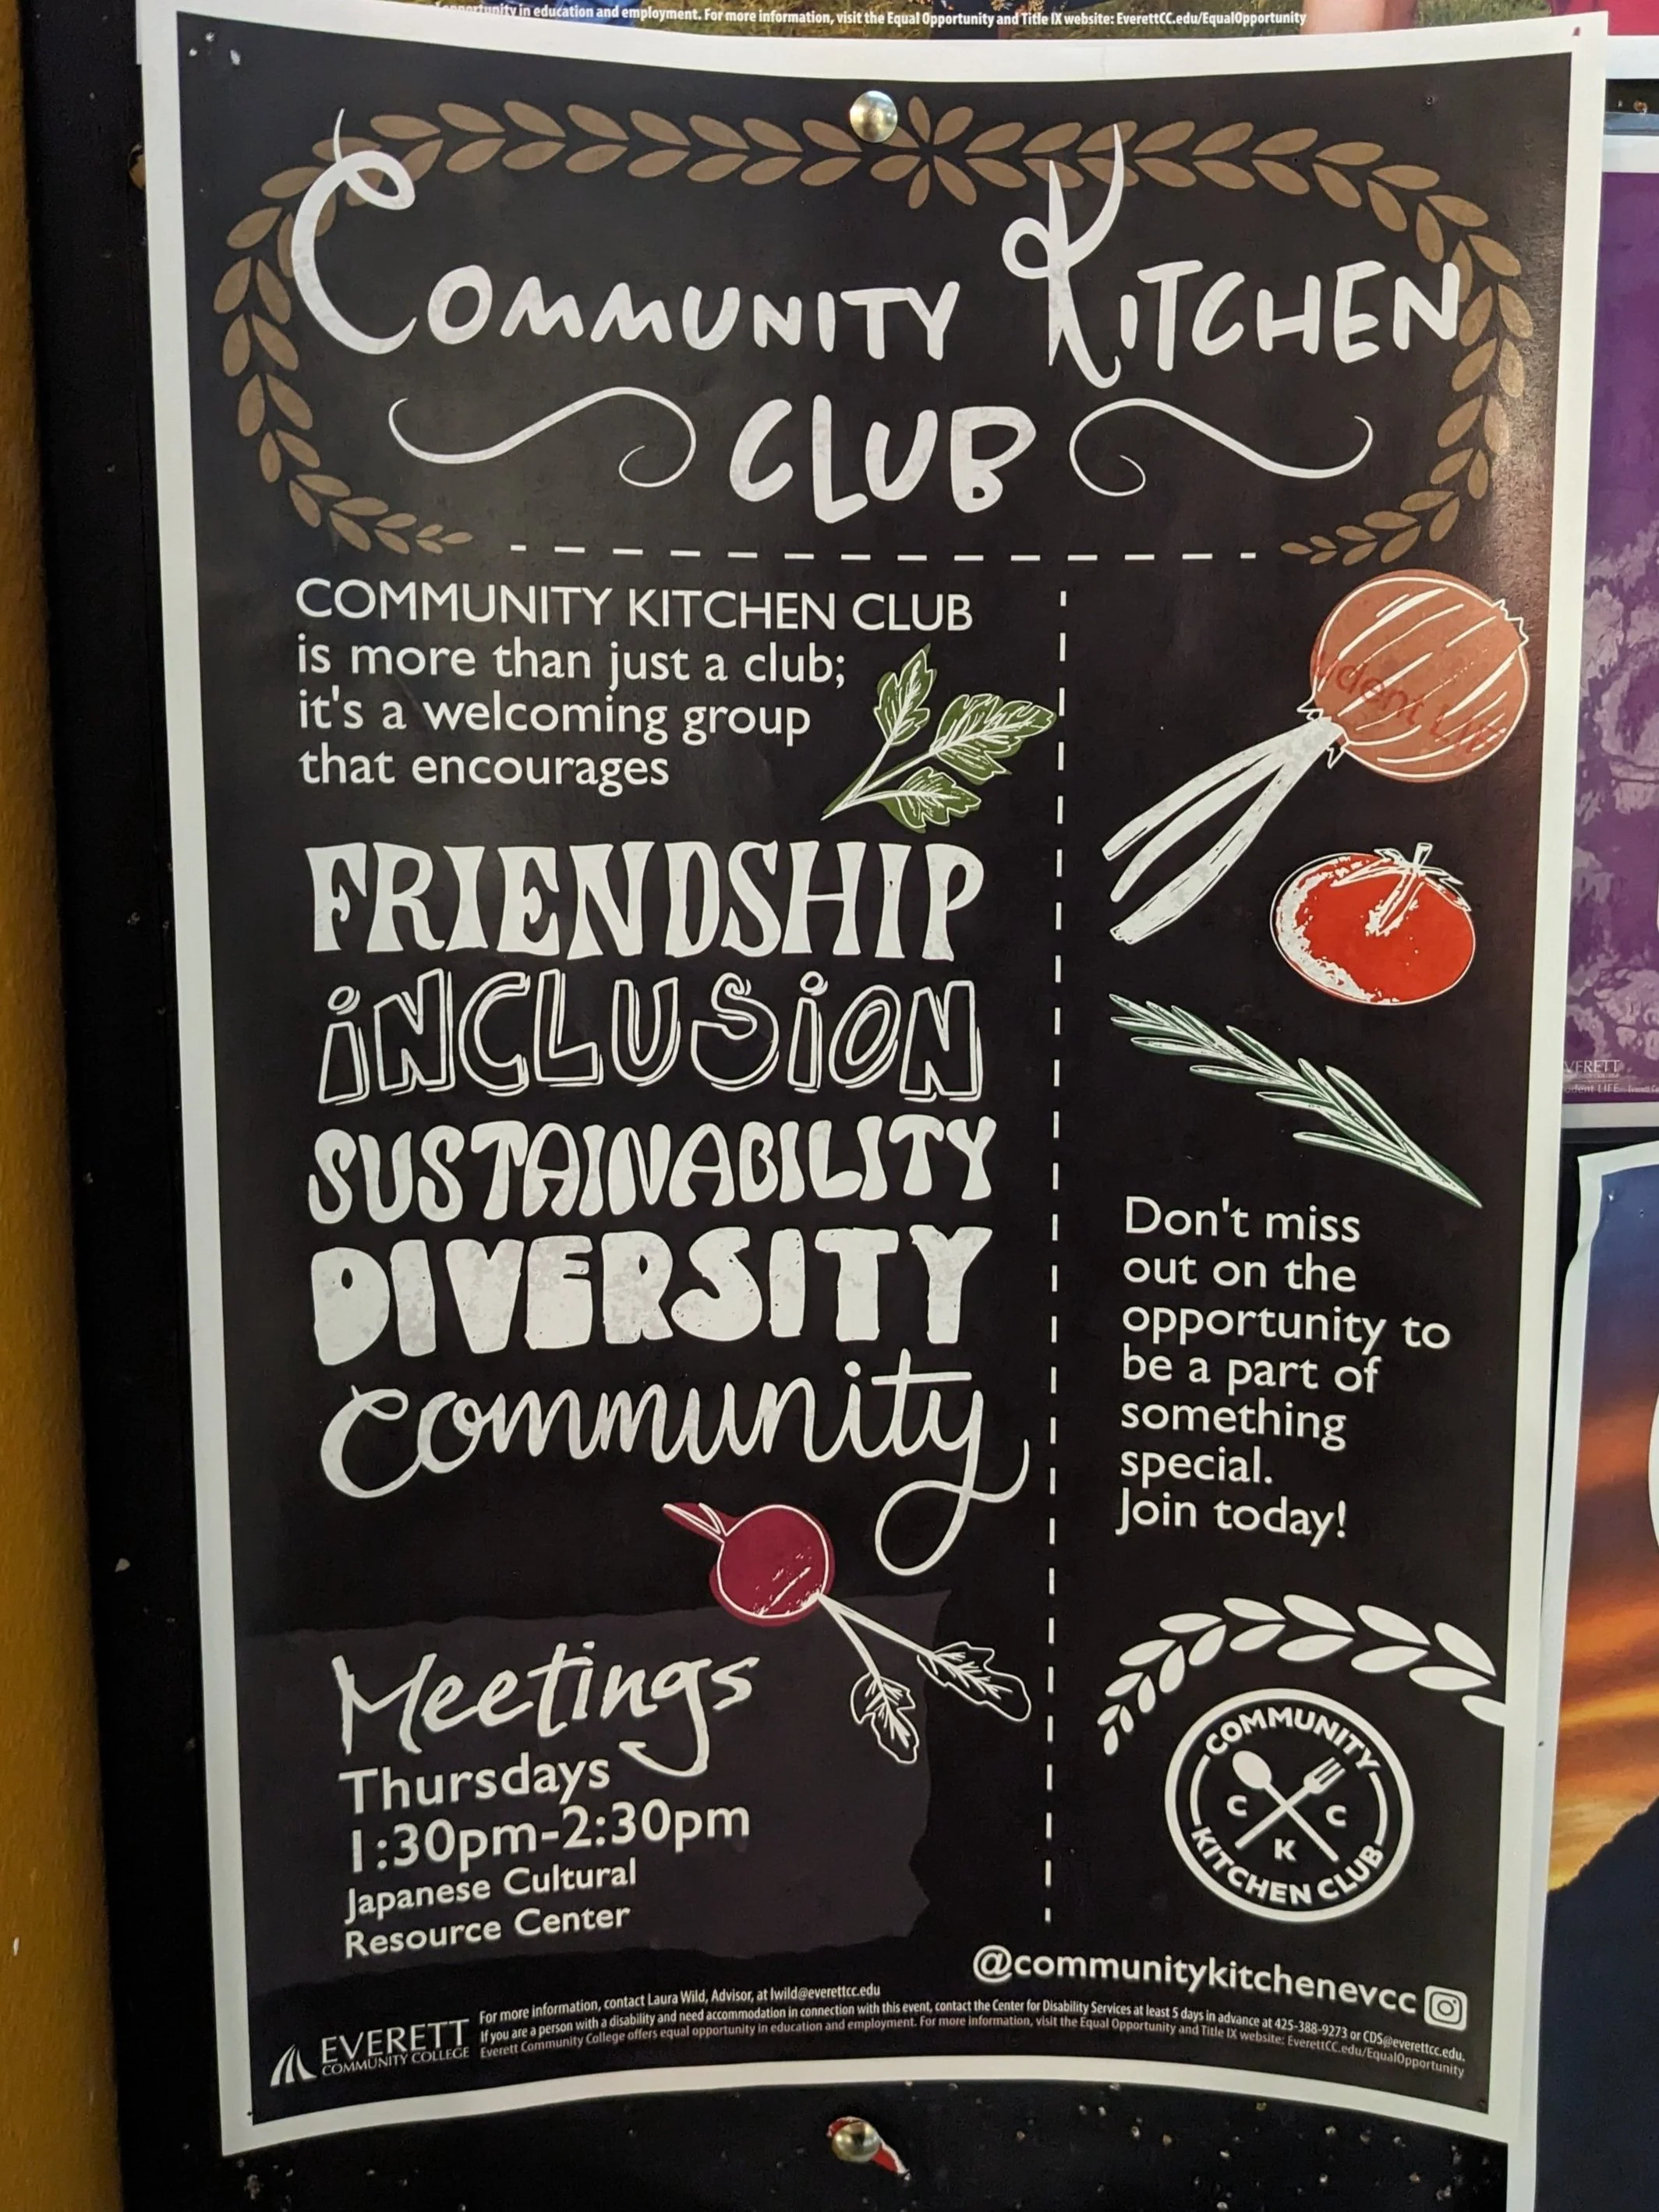 opportunity in education and employment. For more information, visit the Equal Opportunity and Title IX website: EverettCC.edu/EqualOpportunity
COMMUNITY KITCHEN
CLUB
COMMUNITY KITCHEN CLUB
is more than just a club;
it's a welcoming group
that encourages
FRIENDSHIP
iNCLUSiON
SUSTAINABILITY
DIVERSITY
Community
Meetings
Thursdays
1:30pm-2:30pm
Japanese Cultural
Resource Center
udent
Don't miss
out on the
opportunity to
be a part of
something
special.
Join today!
COMMUNITY
C C
K
KITCHEN CLUB
@communitykitchenevcc
EVERETT
COMMUNITY COLLEGE
For more information, contact Laura Wild, Advisor, at lwild@everettcc.edu
If you are a person with a disability and need accommodation in connection with this event, contact the Center for Disability Services at least 5 days in advance at 425-388-9273 or CDS@everettcc.edu.
Everett Community College offers equal opportunity in education and employment. For more information, visit the Equal Opportunity and Title IX website: EverettCC.edu/EqualOpportunity
VERETT
udent LIFE